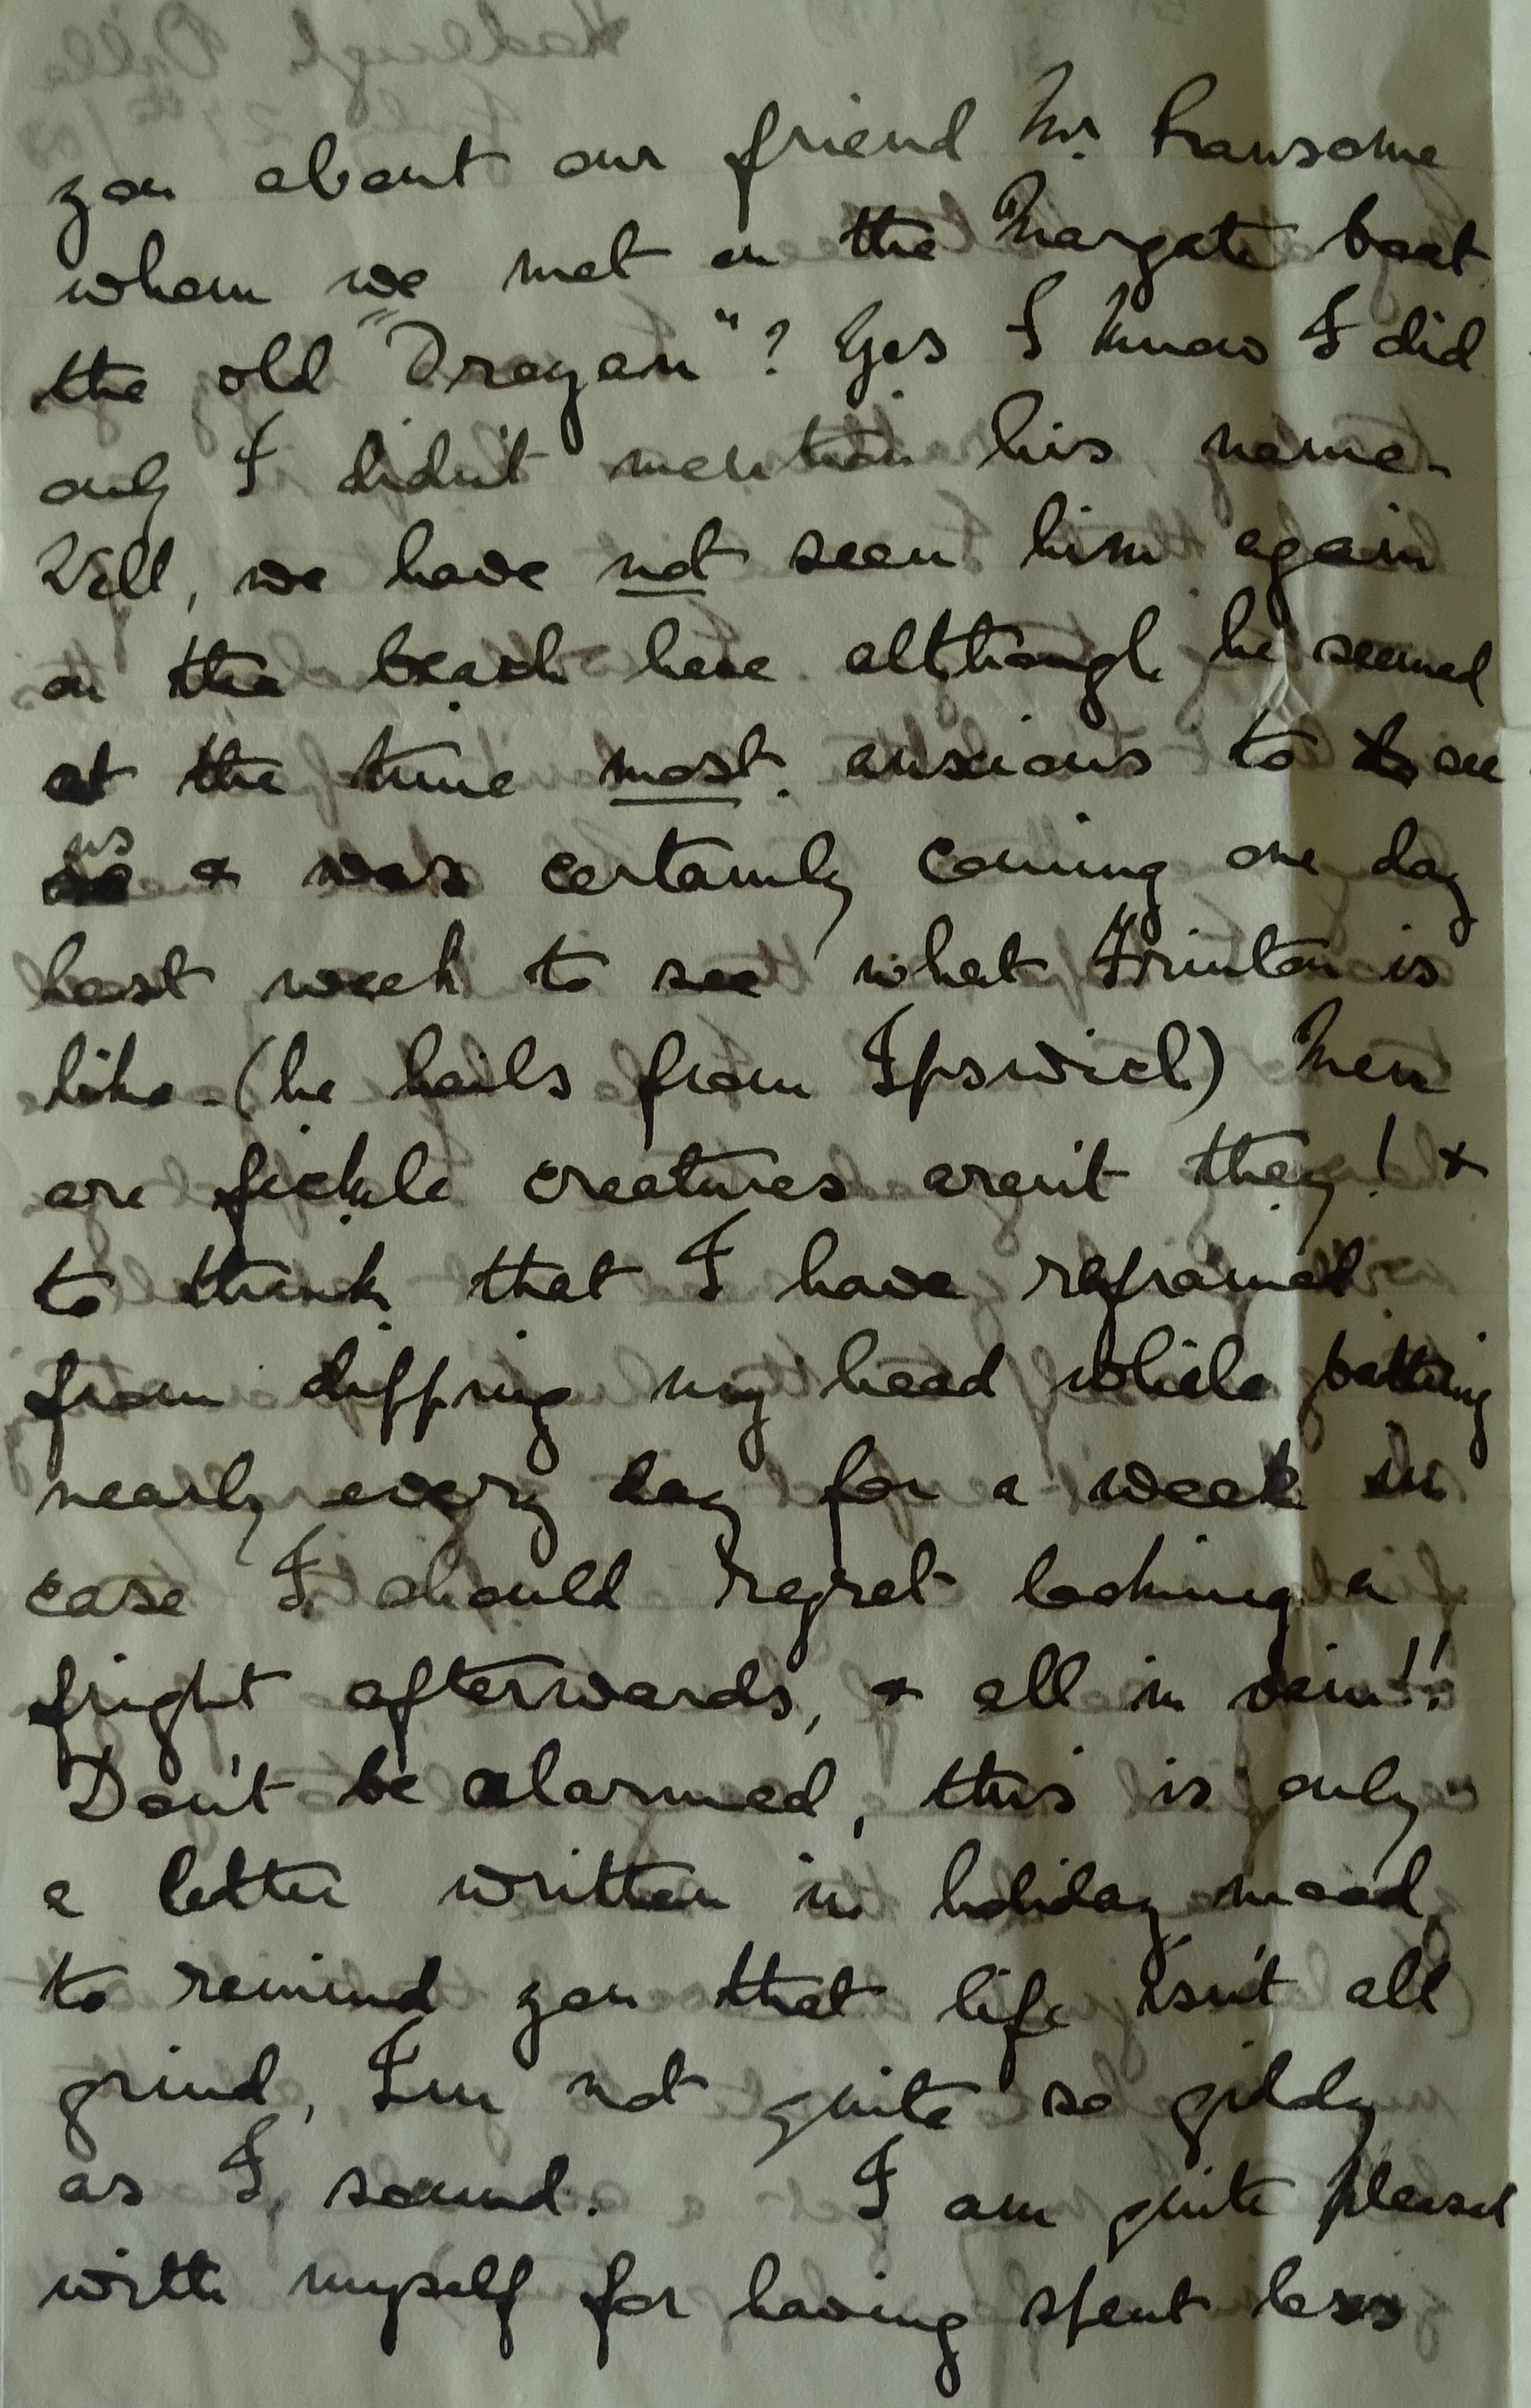 you about our friend Mr. Ransome
whom we met on the Margate boat
the old "Dragon"? Yes I know I did
only I didn't mention his name -
Well, we have not seen him again
on the beach here although he seemed
at the time most anxious to see
us & was certainly coming one day
last week to see what Frinton is
like - (he hails from Ipswich) Men
are fickle creatures aren't they! &
to think that I have refrained
from dipping my head while bathing
nearly every day for a week in
case I should regret looking a
fright afterwards, & all in vain!!
Don't be alarmed, this is only
a letter written in holiday mood,
to remind you that life isn't all
grind, I'm not quite so giddy
as I sound. I am quite pleased
with myself for having spent less